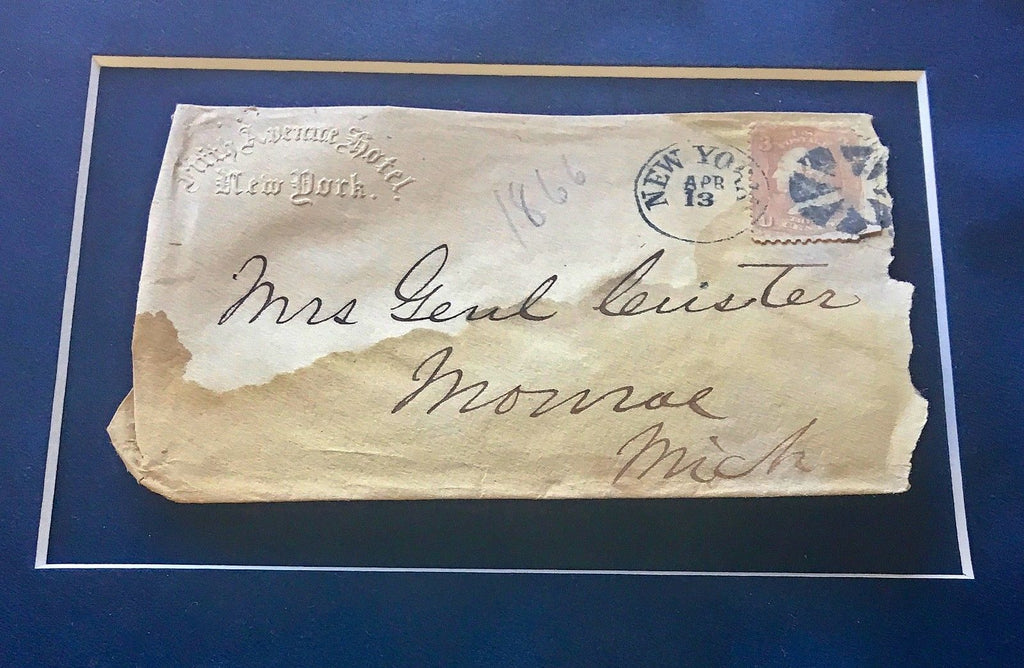 Fifth Avenue Hotel
New York.
1866
NEW YORK
APR
13
3
Mrs Genl Custer
Monroe
Mich